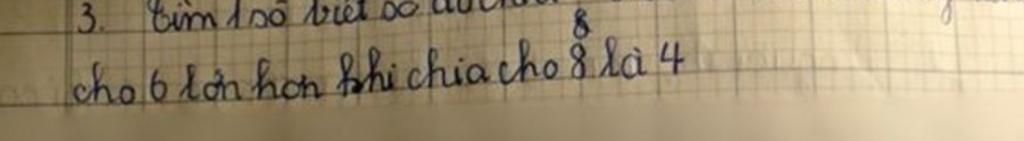 3. tìm 1 số biết
8
cho 6 lớn hơn khi chia cho 8 là 4